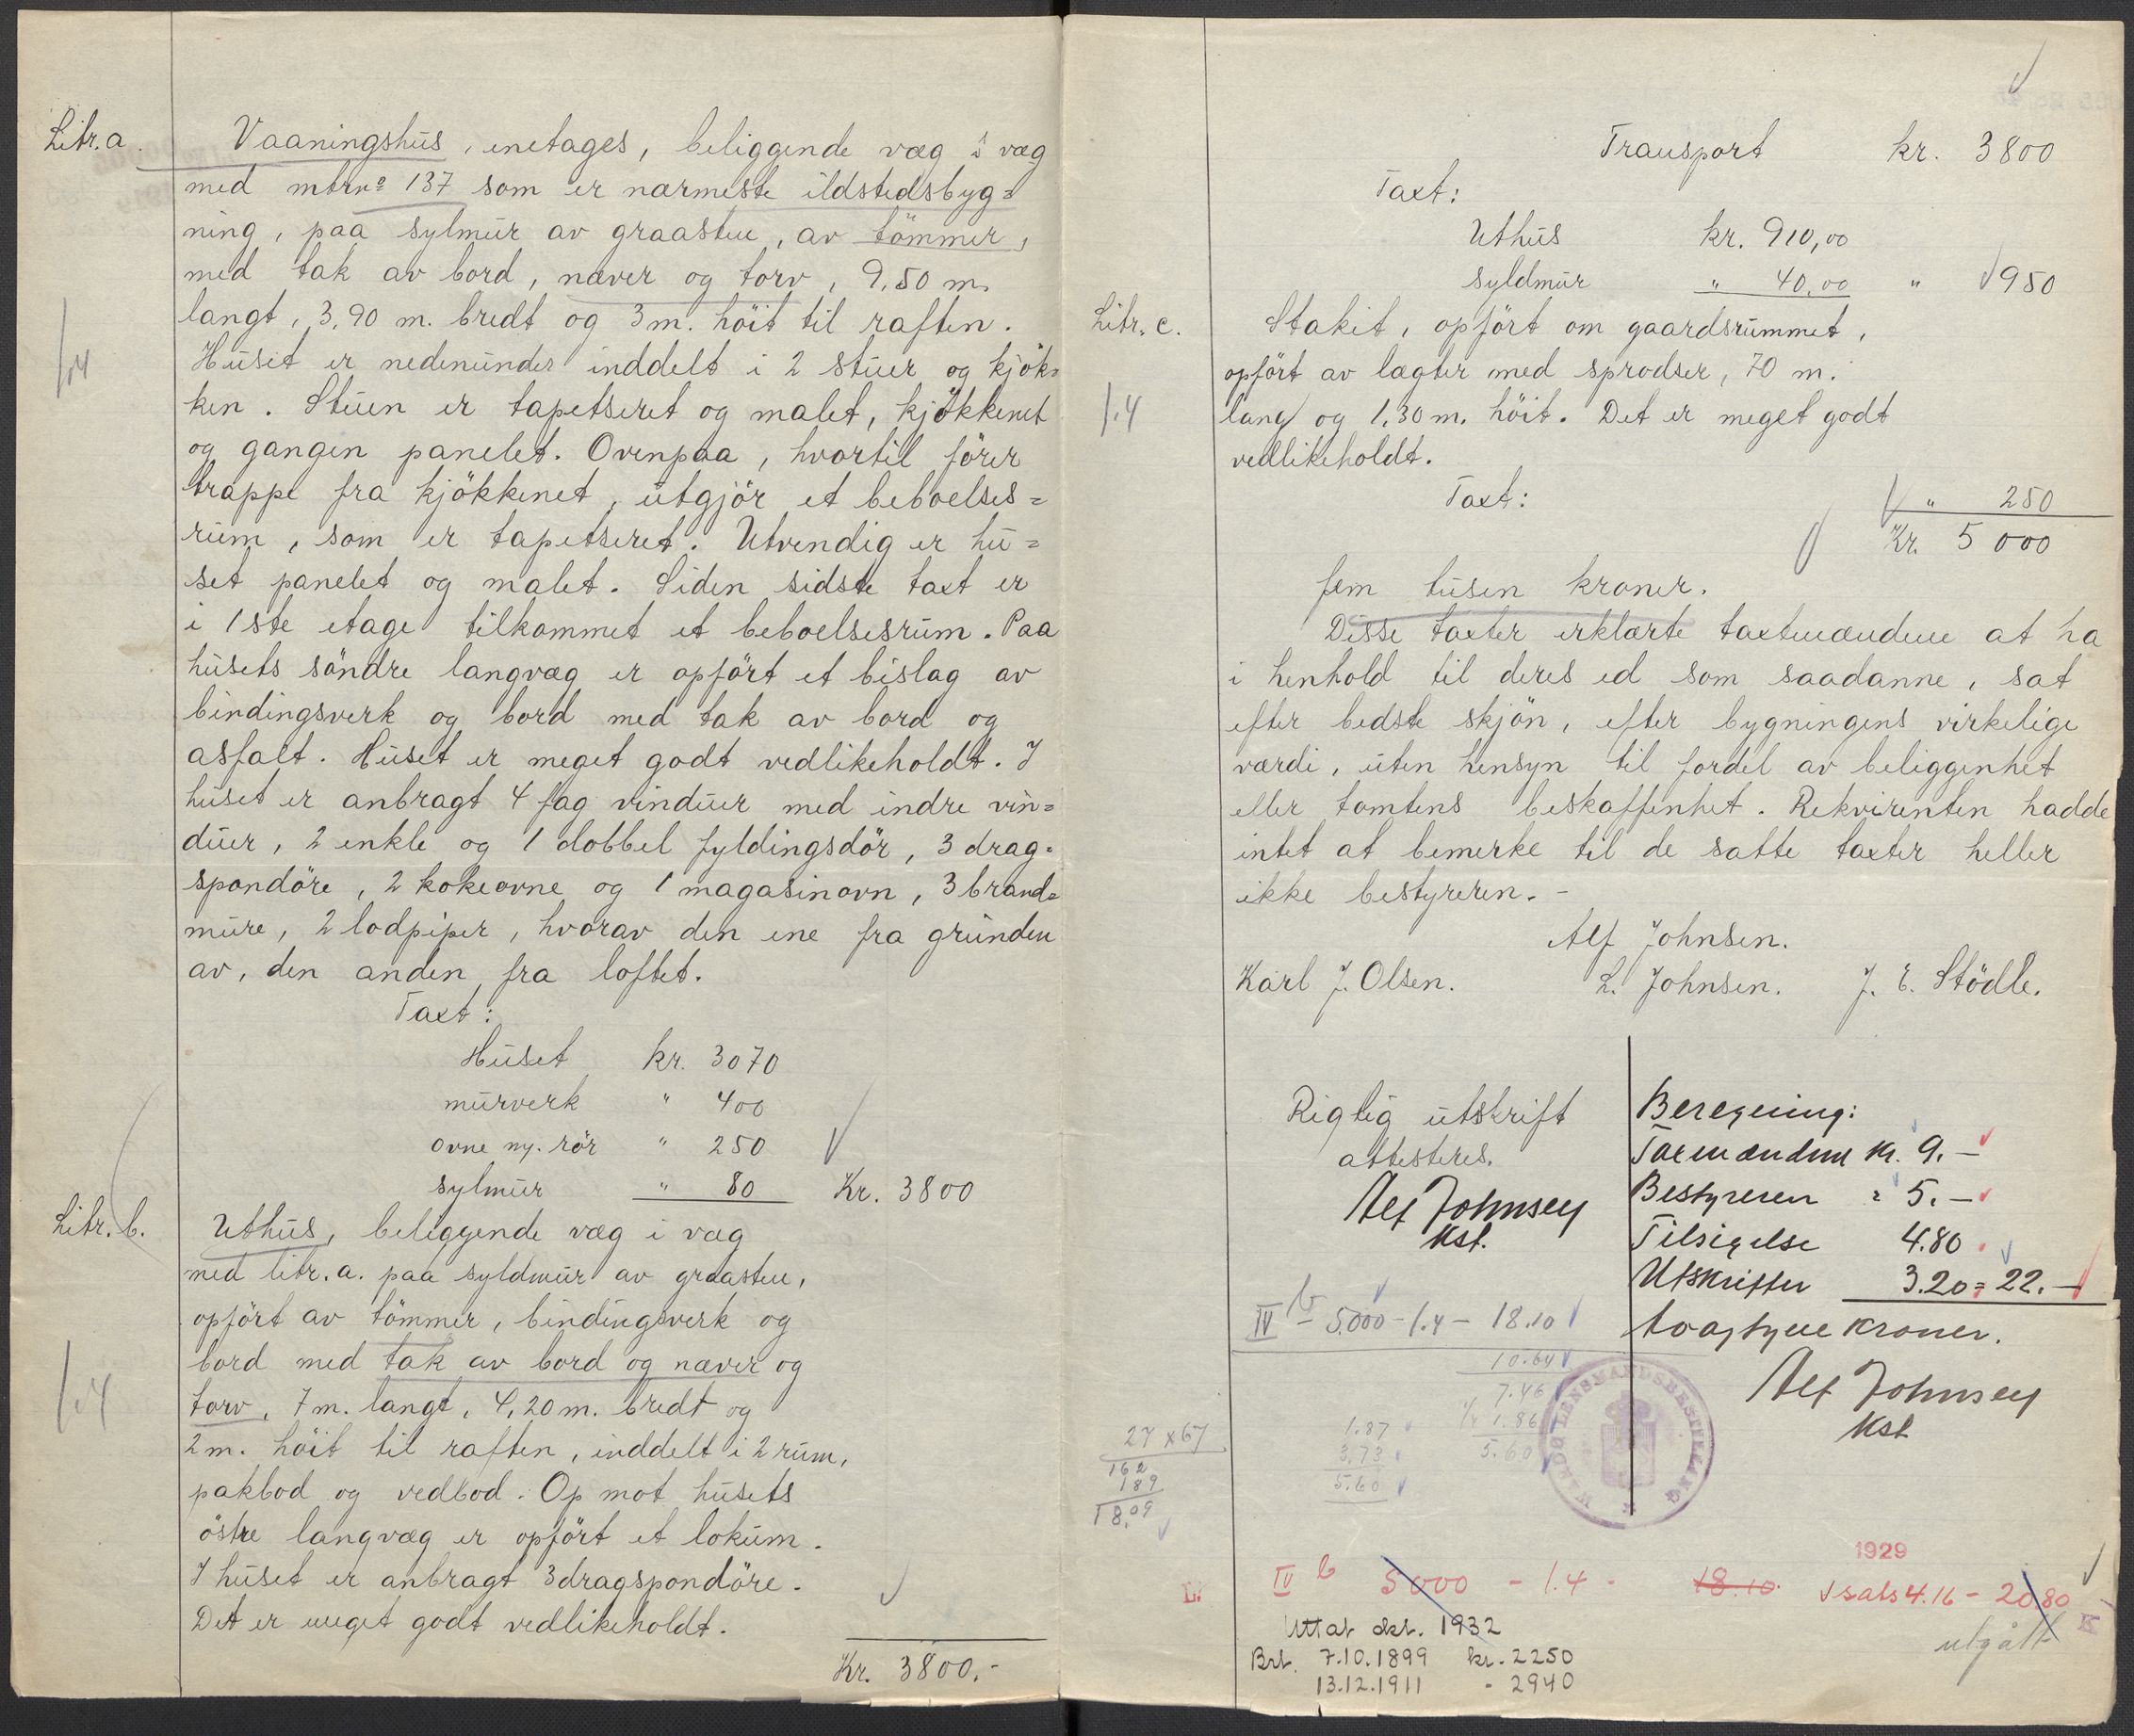 Litr. a. Vaaningshus, enetages, beliggende væg i væg
med mtrnº 137 som er nærmeste ildstedsbyg=
ning, paa sylmur av graasten, av tömmer,
med tak av bord, næver og torv, 9,50 m.
langt, 3,90 m. bredt og 3 m. höit til raften.
1,4
Huset er nedenunder inddelt i 2 stuer og kjök=
ken. Stuen er tapetseret og malet, kjökkenet
og gangen panelet. Ovenpaa, hvortil förer
trappe fra kjökkenet, utgjör et beboelses=
rum, som er tapetseret. Utvendig er hu=
set panelet og malet. Siden sidste taxt er
i 1ste etage tilkommet et beboelsesrum. Paa
husets söndre langvæg er opfört et bislag av
bindingsverk og bord med tak av bord og
asfalt. Huset er meget godt vedlikeholdt. I
huset er anbragt 4 fag vinduer med indre vin=
duer, 2 enkle og 1 dobbel fyldingsdör, 3 drag=
spondöre, 2 kokeovne og 1 magasinovn, 3 brand=
mure, 2 lodpiper, hvorav den ene fra grunden
av, den anden fra loftet.
Taxt:
Huset kr. 3070
murverk " 400
ovne m. rör " 250
sylmur " 80 Kr. 3800
Litr. b. Uthus, beliggende væg i væg
med litr. a. paa syldmur av graasten,
opfört av tömmer, bindingsverk og
bord med tak av bord og næver og
1,4
torv, 7 m. langt, 4,20 m. bredt og
2 m. höit til raften, inddelt i 2 rum,
pakbod og vedbod. Op mot husets
östre langvæg er opfört et lokum.
I huset er anbragt 3 dragspondöre.
Det er meget godt vedlikeholdt.
Kr. 3800.-
Transport kr. 3800
Taxt:
Uthus kr. 910,00
syldmur " 40,00 " 950
Litr. c. Stakit, opfört om gaardsrummet,
opfört av lægter med sprodser, 70 m.
1.4 lang og 1,30 m. höit. Det er meget godt
vedlikeholdt.
Taxt: " 250
Kr. 5000
fem tusen kroner.
Disse taxter erklærte taxtmændene at ha
i henhold til deres ed som saadanne, sat
efter bedste skjön, efter bygningens virkelige
værdi, uten hensyn til fordel av beliggenhet
eller tomtens beskaffenhet. Rekvirenten hadde
intet at bemerke til de satte taxter heller
ikke bestyreren. -
Alf Johnsen.
Karl J. Olsen. L. Johnsen. J. E. Stödle.
Rigtig utskrift
attesteres.
Alf Johnsen
Kst.
Beregning:
Taxmændene Kr. 9.-
Bestyreren " 5.-
Tilsigelse 4.80
Utskrifter 3.20 = 22.-
toogtyve kroner.
Alf Johnsen
Kst
IV b 5.000 - 1.4 - 18.10
10.64
7.46
1/4 1.86
5.60
1.87
3.73
5.60
27 x 67
162
189
18,09
LENSMANDSBESTILLING
1929
L. IV b 5000 - 1.4 - 18.10 sats 4.16 - 20,80
Uttat okt. 1932
utgått
Brt. 7.10.1899 kr. 2250
13.12.1911 - 2940